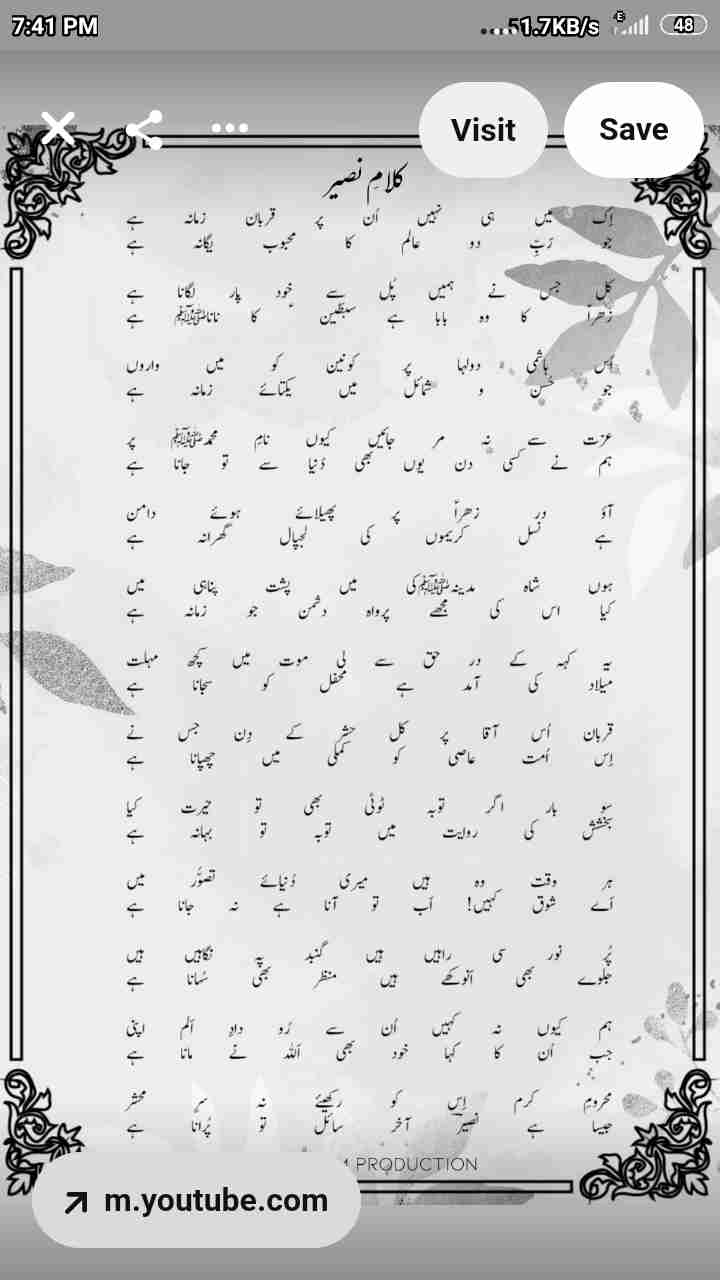 7:41 PM
1.7KB/s
48
Visit
Save
کلامِ نصیر
اِک میں ہی نہیں اُن پر قربان زمانہ ہے
جو رَبِّ دو عالم کا محبوب یگانہ ہے
کل جس نے ہمیں پُل سے خود پار لگانا ہے
زھراؑ کا وہ بابا ہے سبطین کا ناناﷺ ہے
اُس ہاشمی دولہا پر کونین کو میں واروں
جو حُسن و شمائل میں یکتائے زمانہ ہے
عزت سے نہ مر جائیں کیوں نامِ محمدﷺ پر
ہم نے کسی دن یوں بھی دُنیا سے تو جانا ہے
آؤ درِ زھراؑ پر پھیلائے ہوئے دامن
ہے نسل کریموں کی لجپال گھرانہ ہے
ہوں شاہ مدینہﷺکی میں پشت پناہی میں
کیا اس کی مجھے پرواہ دشمن جو زمانہ ہے
یہ کہہ کے درِ حق سے لی موت میں کچھ مہلت
میلاد کی آمد ہے محفل کو سجانا ہے
قربان اُس آقا پر کل حشر کے دِن جس نے
اِس اُمت عاصی کو کملی میں چھپانا ہے
سو بار اگر توبہ ٹوٹی بھی تو حیرت کیا
بخشش کی روایت میں توبہ تو بہانہ ہے
ہر وقت وہ ہیں میری دُنیائے تصوّر میں
اَے شوق کہیں! اَب تو آنا ہے نہ جانا ہے
پُر نور سی راہیں ہیں گنبد پہ نگاہیں ہیں
جلوے بھی اَنوکھے ہیں منظر بھی سُہانا ہے
ہم کیوں نہ کہیں اُن سے رُو دادِ اَلم اپنی
جب اُن کا کہا خود بھی اَللہ نے مانا ہے
محرومِ کرم اِس کو رکھیئے نہ سرِ محشر
جیسا ہے نصیرؔ آخر سائل تو پُرانا ہے
PRODUCTION
m.youtube.com